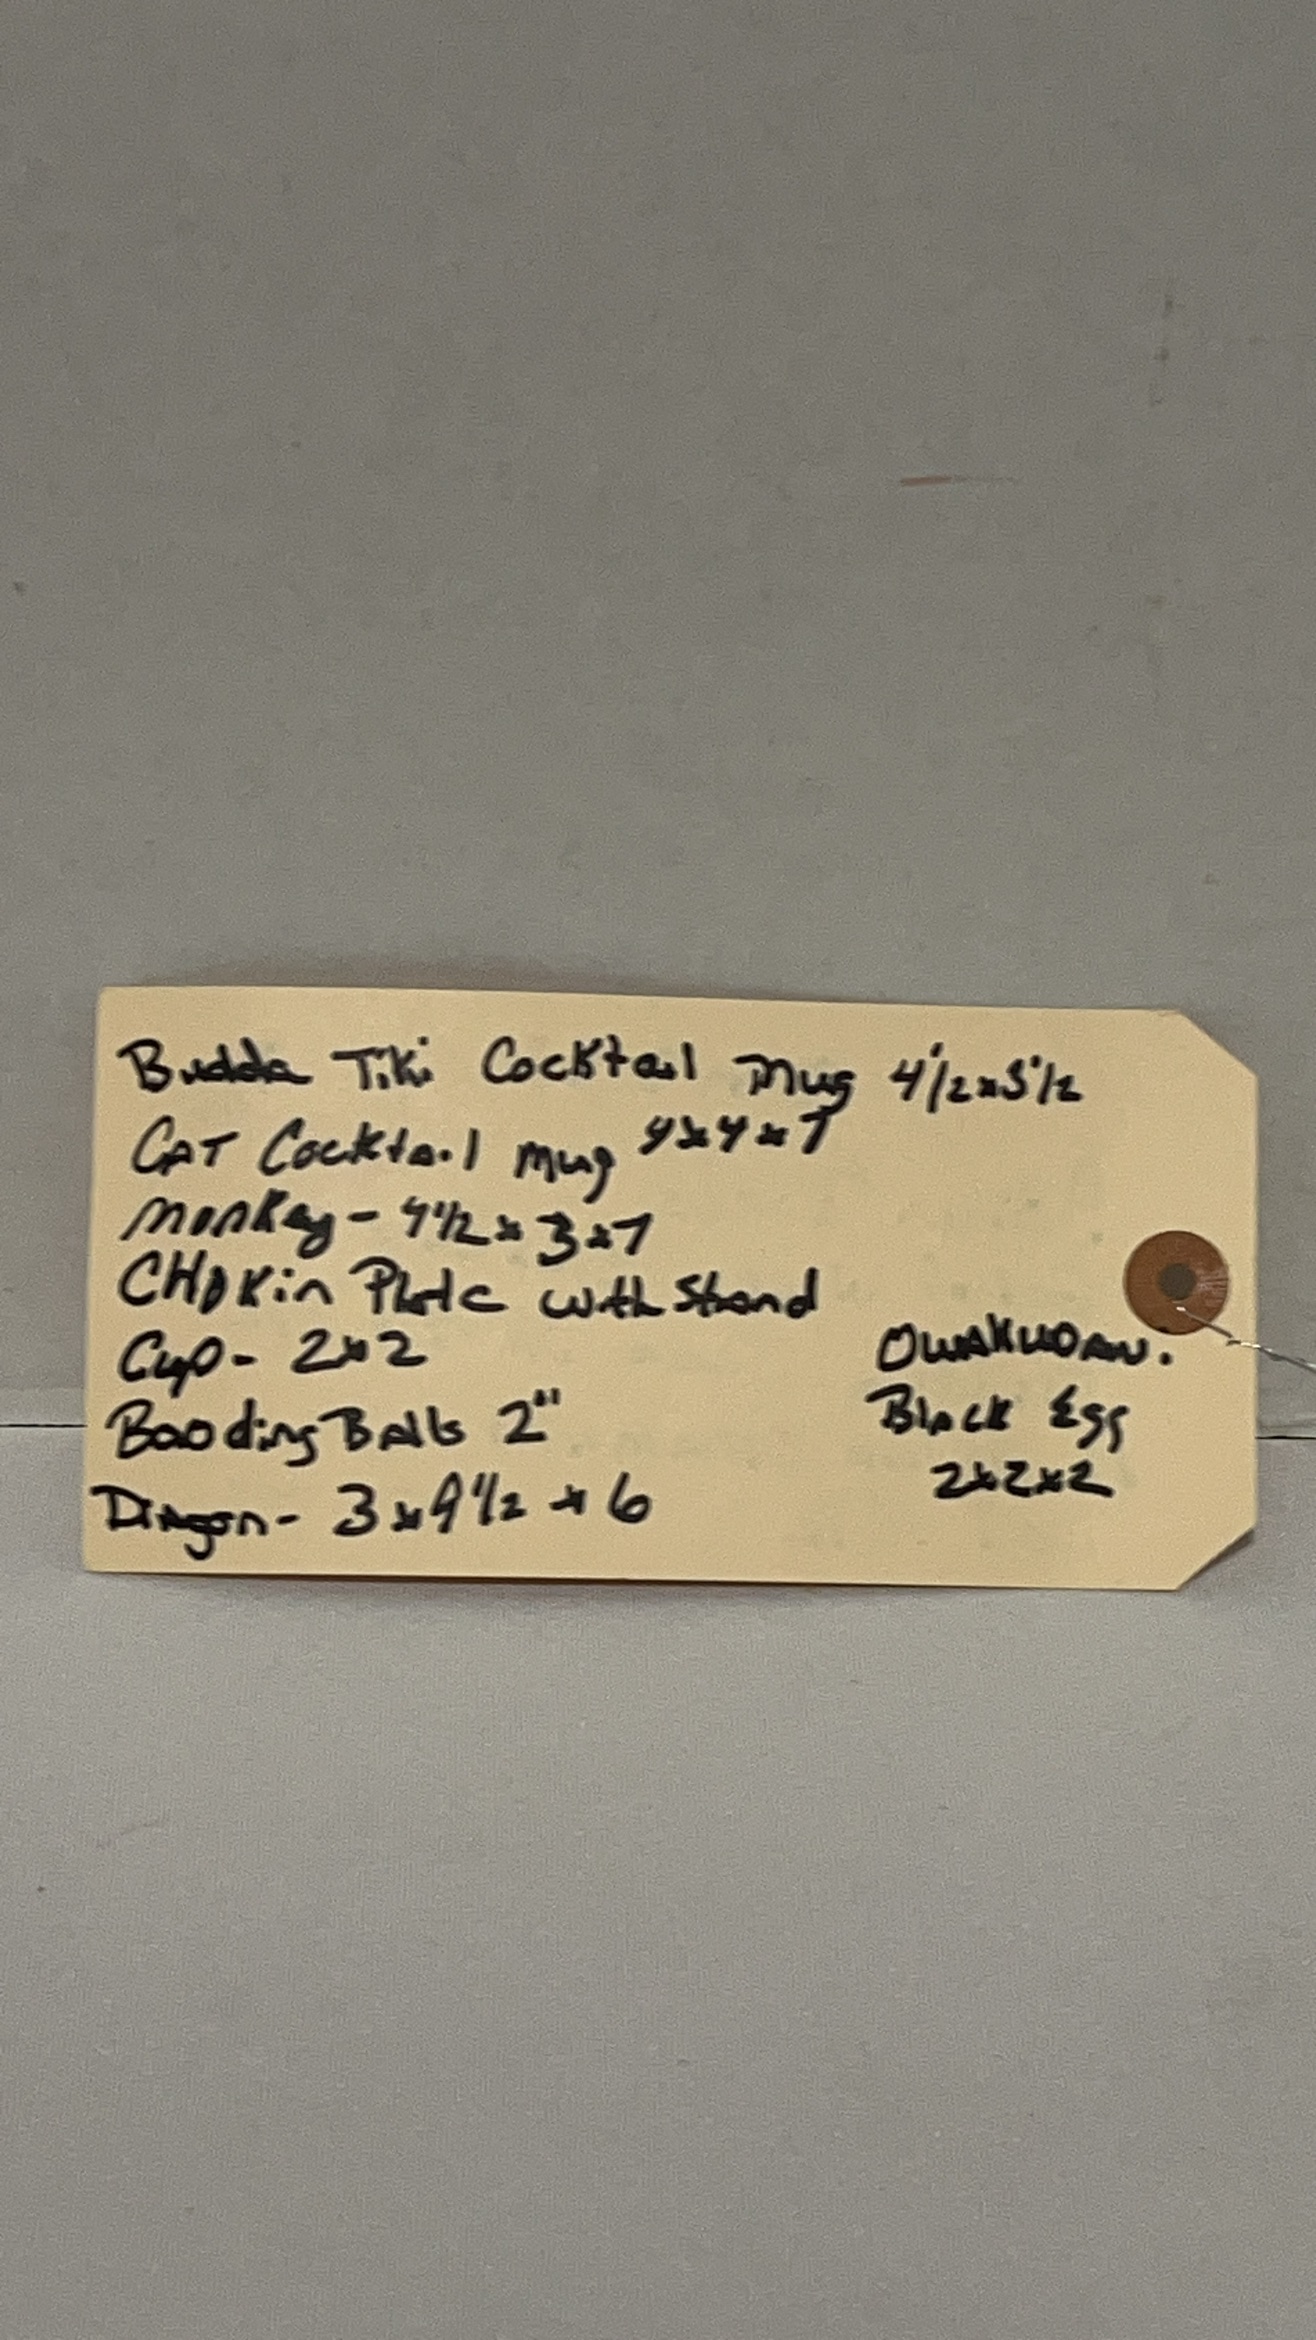 Budda Tiki Cocktail Mug 4 1/2 x 3 1/2
CAT Cocktail mug 4x4x7
monkey - 4 1/2 x 3 x 7
CHOKin Plate with Stand
Cup - 2x2
Baoding Balls 2"
Dragon - 3 x 9 1/2 x 6
OWAKUDANI.
Black Egg
2x2x2